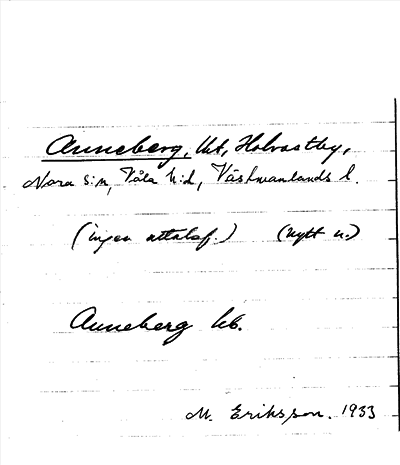 Anneberg, lht, Holvastby,
Nora s:n, Våla h:d, Västmanlands l.
(ingen uttalsf.) (nytt n.)
Anneberg
M. Eriksson. 1933